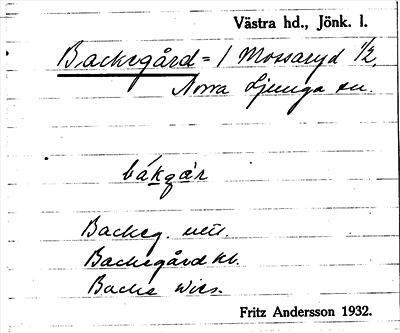 Västra hd., Jönk. l.
Backegård = 1 Mossaryd 1/2,
Norra Ljunga sn.
bákgàr
Backeg.
Backegård kb.
Backe
Fritz Andersson 1932.